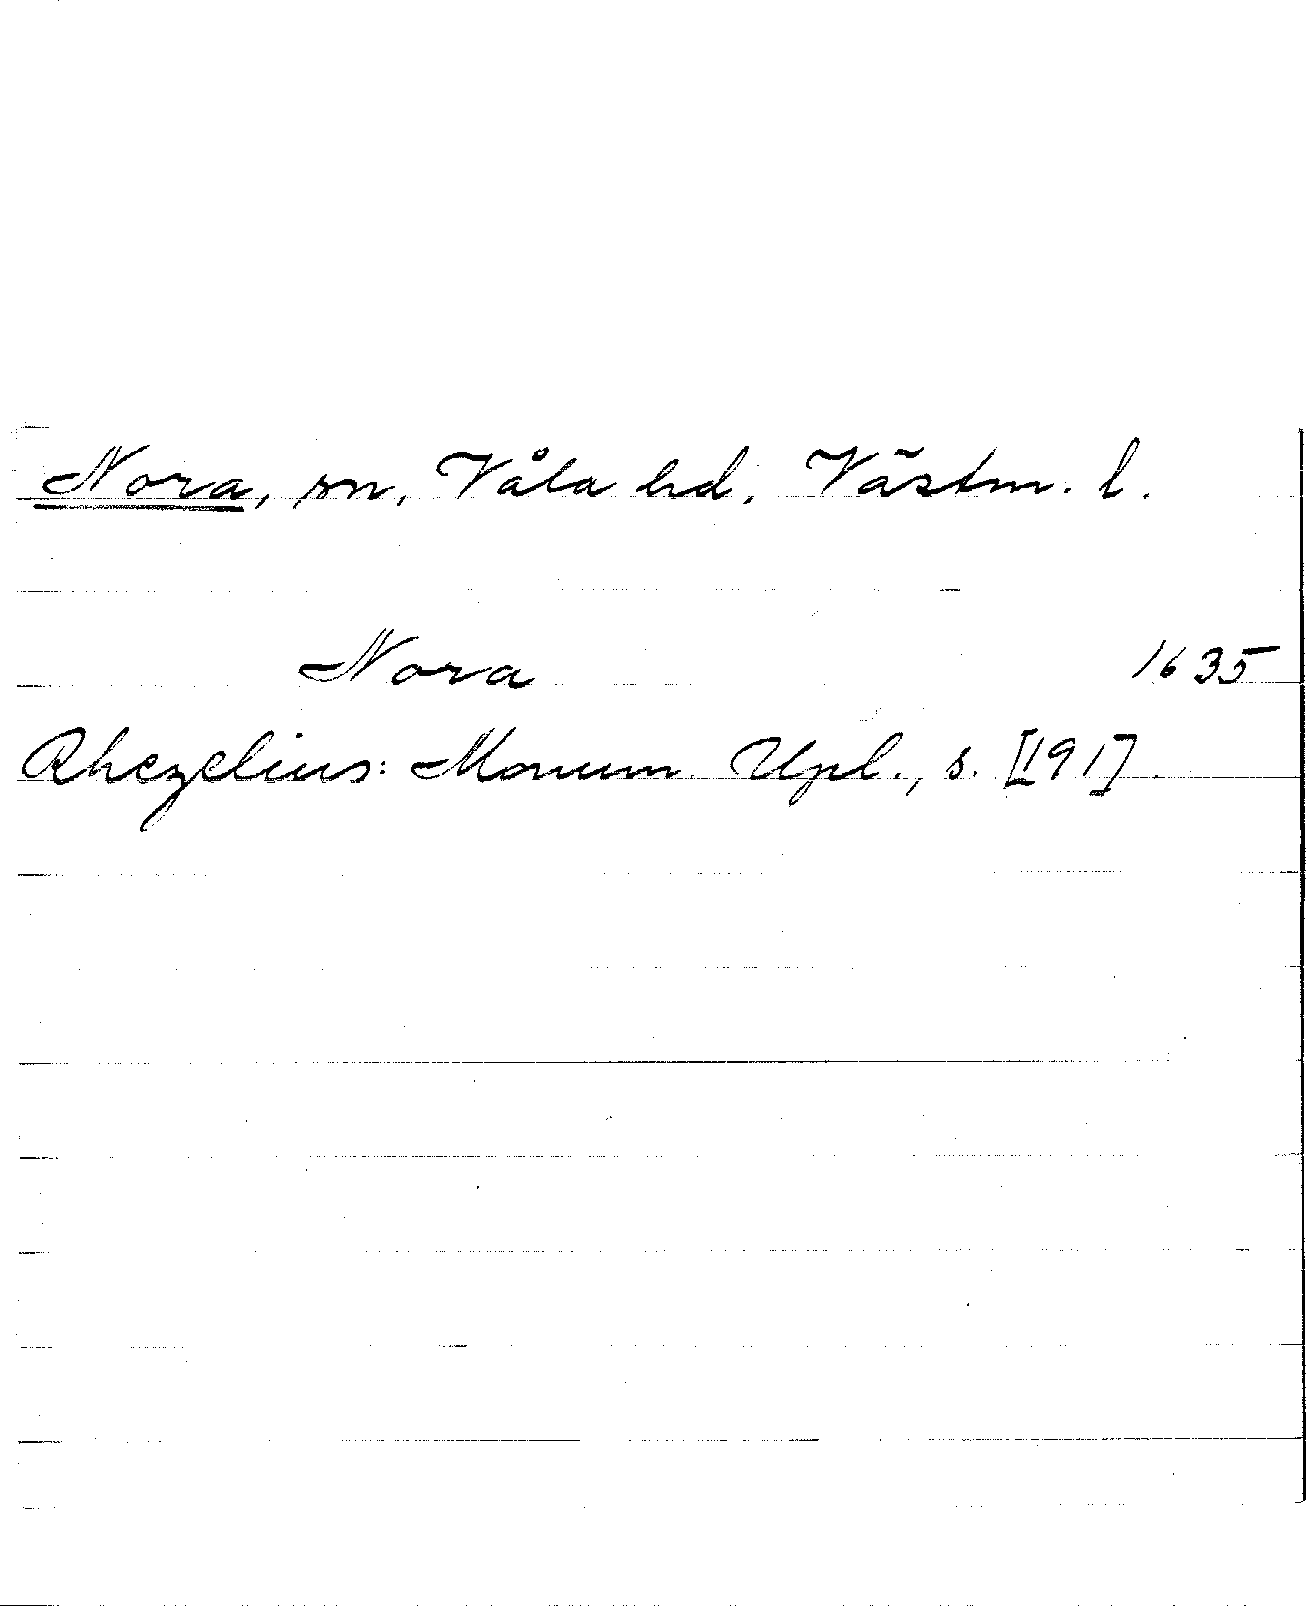 Nora, sn, Våla hd. Västm. l.
Nora 1635
Rhezelius: Monum. Upl., s. [191].